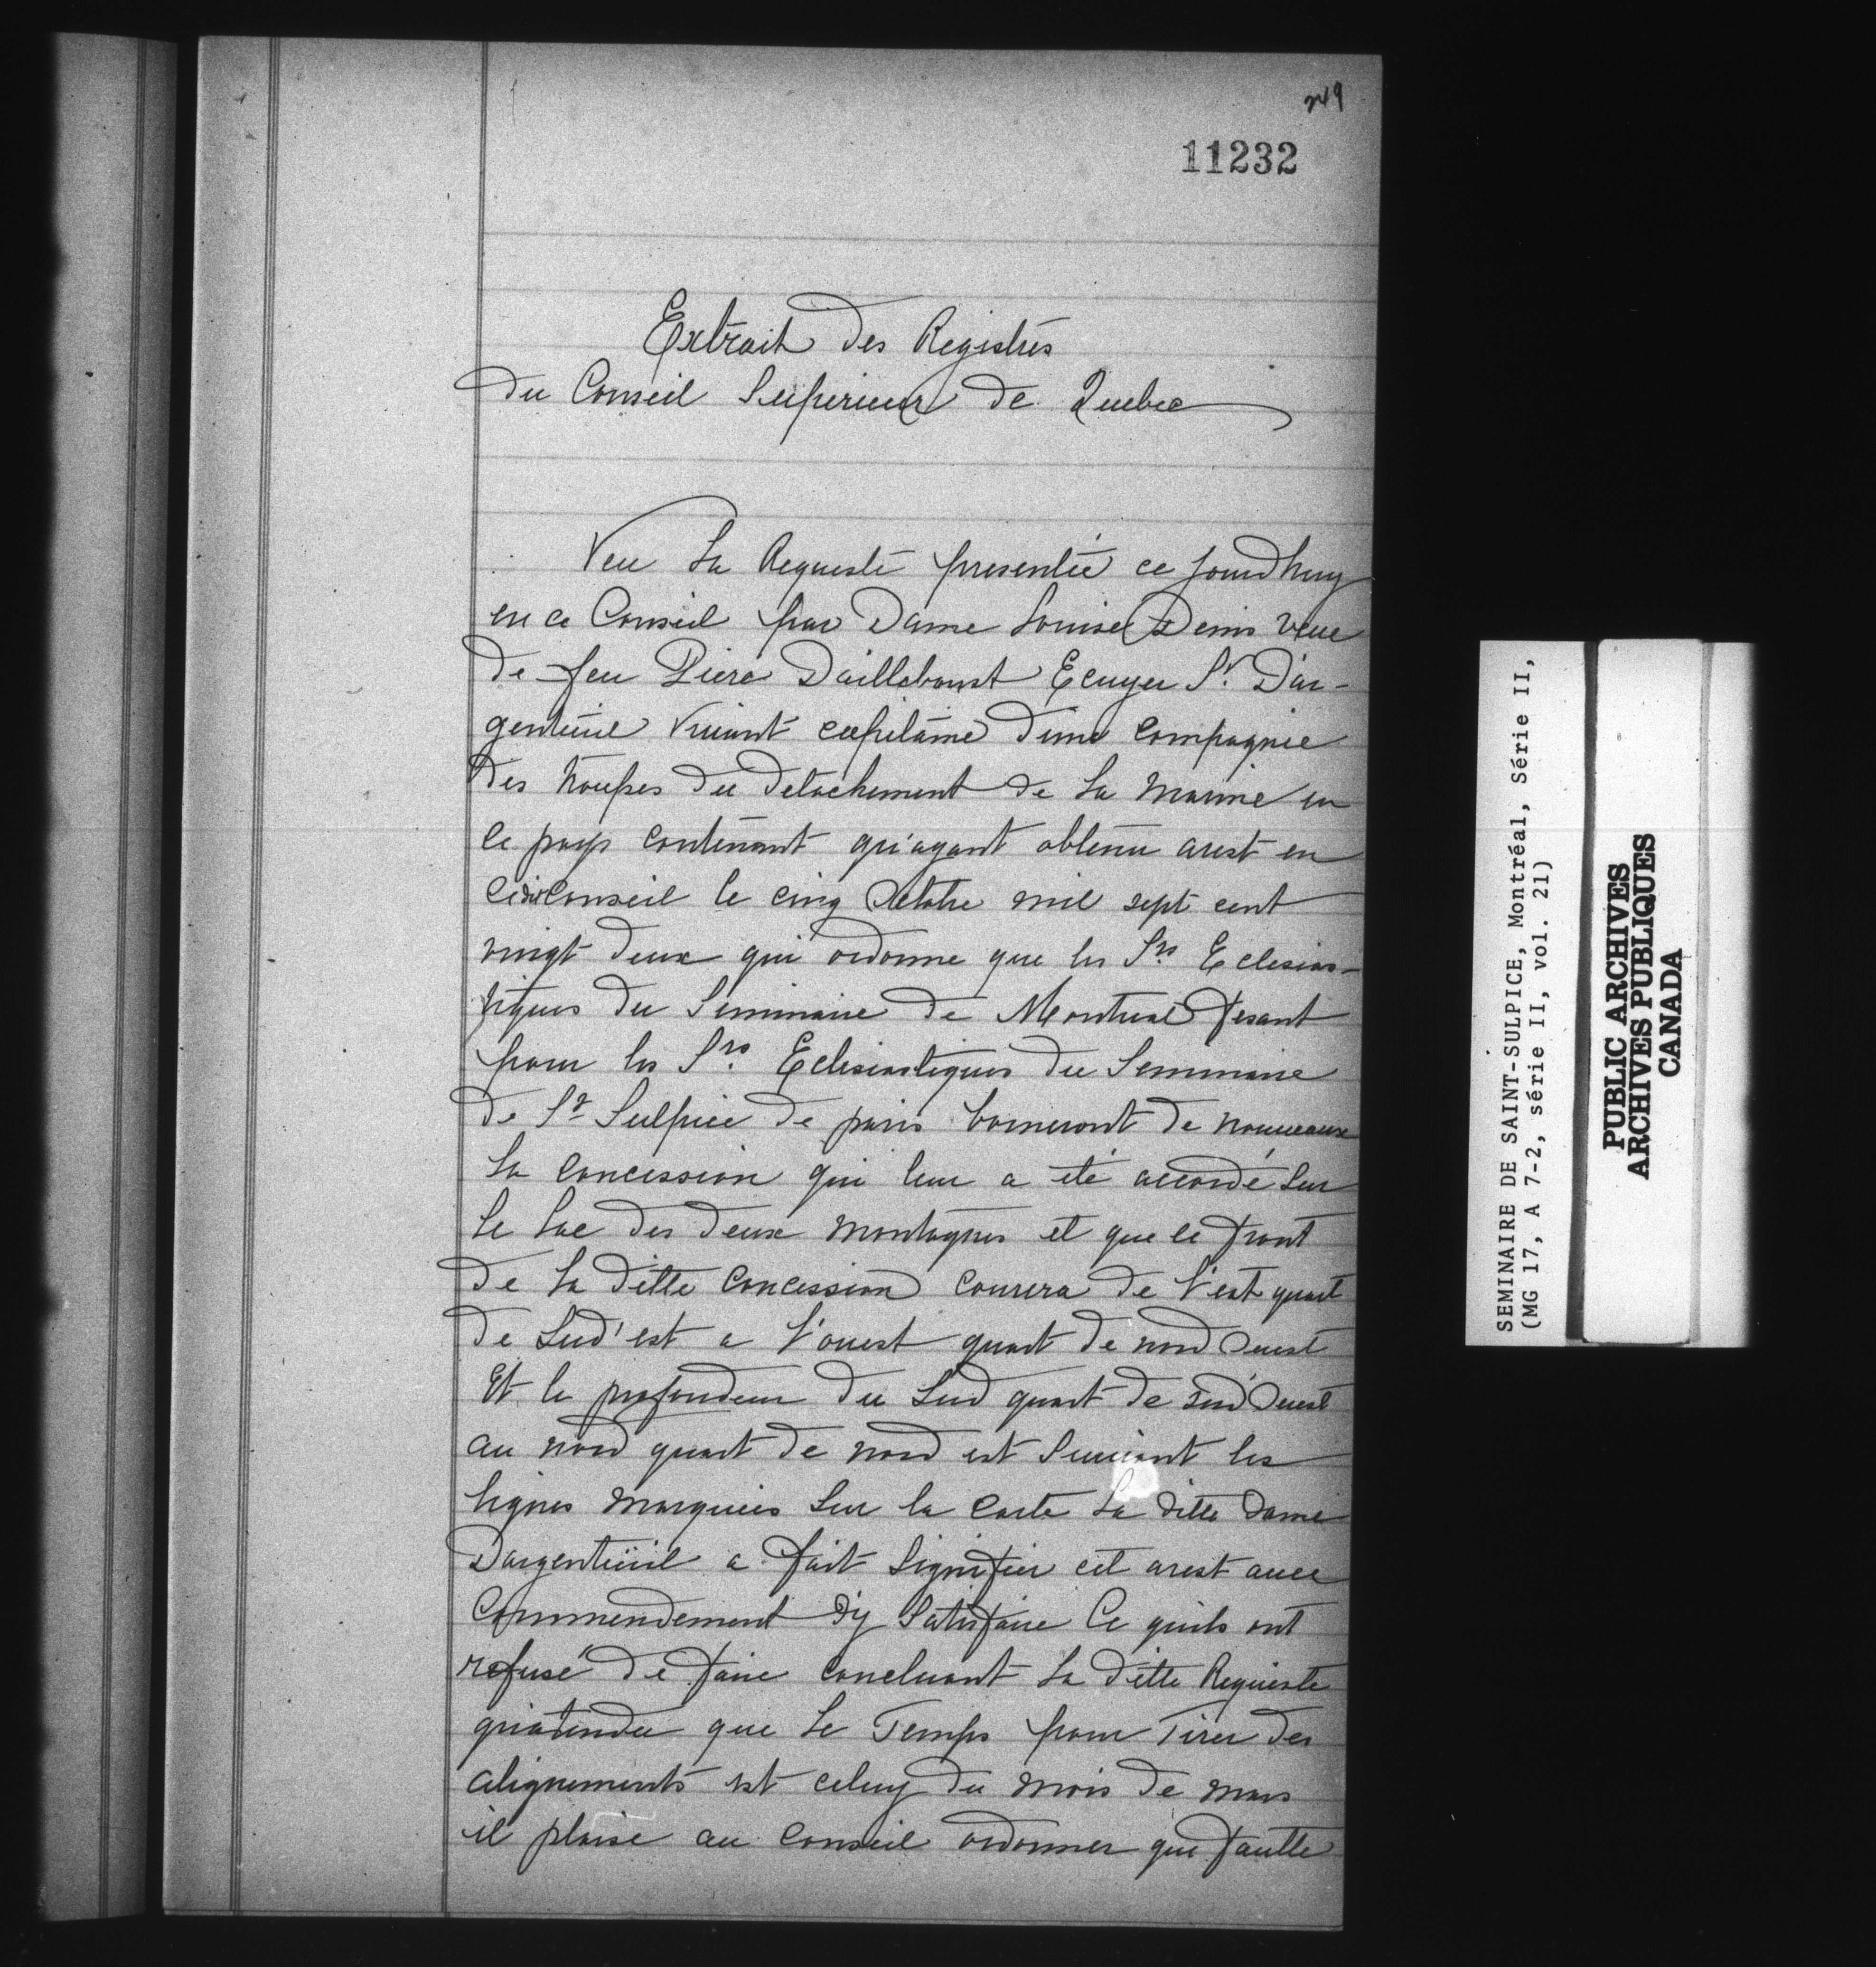 249
11232
Extrait des Registres
du Conseil Superieur de Quebec
Veu La Requeste presentée ce jourdhuy
en ce Conseil par Dame Louise Denis veue
de feu Piere Dailleboust Ecuyer Sr. D'ar-
genteüil Viuant capitaine d'une compagnie
des troupes du detachement de la marine en
ce pays contenant qu'ayant obtenu arest en
cedit conseil le cinq Octobre mil sept cent
vingt deux qui ordonne que les Srs Eclesias-
tiques du Seminaire de Montreal fesant
pour les Srs. Eclesiastiques du Seminaire
de St Sulpice de paris borneront de nouveaux
La concession qui leur a été accordé sur
Le Lac des deux montagnes et que le front
de La ditte Concession Courera de l'est quart
de Sud'est a l'ouest quart de nord Ouest
Et la profondeur du Sud quart de sud Ouest
au nord quart de nord est Suiuant les
lignes marquées Sur la carte La ditte dame
Dargenteüil a fait Signifier cet arest auec
Commendement d'y Satisfaire Ce quils ont
refusé de faire concluant La ditte Requeste
qu'atendu que Le Temps pour Tirer des
alignements est celuy du mois de mars
il plaise au Conseil ordonner que faulte
SEMINAIRE DE SAINT-SULPICE, Montréal, Série II,
(MG 17, A 7-2, série II, vol. 21)
PUBLIC ARCHIVES
ARCHIVES PUBLIQUES
CANADA